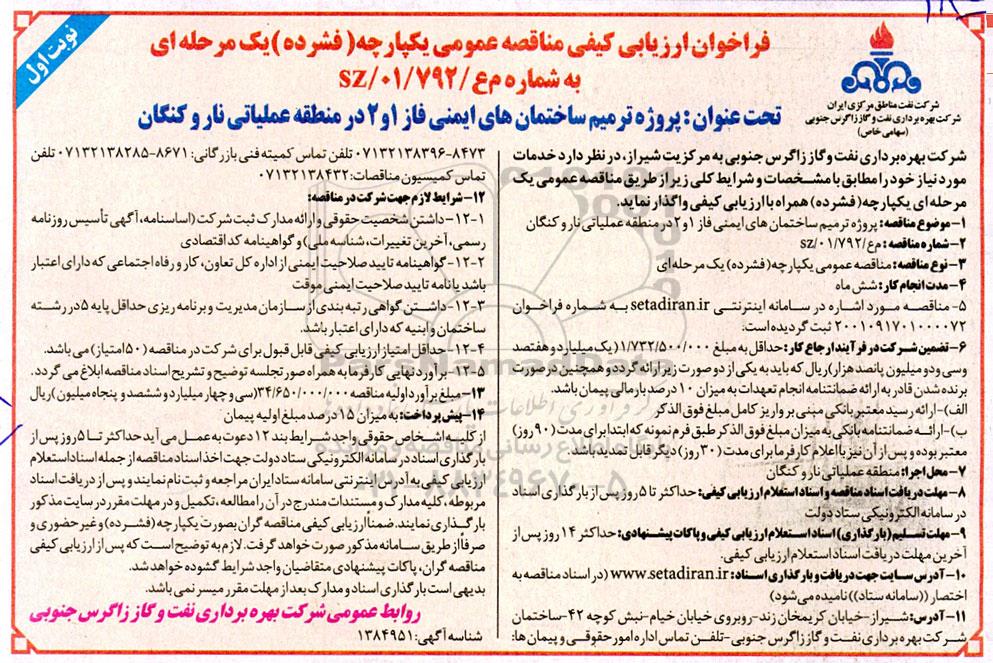 نوبت اول
فراخوان ارزیابی کیفی مناقصه عمومی یکپارچه (فشرده) یک مرحله ای
به شماره م ع/SZ/۰۱/۷۹۲
تحت عنوان: پروژه ترمیم ساختمان های ایمنی فاز ۱و۲ در منطقه عملیاتی نار و کنگان
شرکت نفت مناطق مرکزی ایران
شرکت بهره برداری نفت و گاز زاگرس جنوبی
(سهامی خاص)
شرکت بهره برداری نفت و گاز زاگرس جنوبی به مرکزیت شیراز، در نظر دارد خدمات
مورد نیاز خود را مطابق با مشخصات و شرایط کلی زیر از طریق مناقصه عمومی یک
مرحله ای یکپارچه (فشرده) همراه با ارزیابی کیفی واگذار نماید.
۱- موضوع مناقصه: پروژه ترمیم ساختمان های ایمنی فاز ۱و۲ در منطقه عملیاتی نار و کنگان
۲- شماره مناقصه: م ع/SZ/۰۱/۷۹۲
۳- نوع مناقصه: مناقصه عمومی یکپارچه (فشرده) یک مرحله ای
۴- مدت انجام کار: شش ماه
۵- مناقصه مورد اشاره در سامانه اینترنتی setadiran.ir به شماره فراخوان
۲۰۰۱۰۹۱۷۰۱۰۰۰۰۷۲ ثبت گردیده است:
۶- تضمین شرکت در فرآیند ارجاع کار: حداقل به مبلغ ۱/۷۳۲/۵۰۰/۰۰۰ (یک میلیارد و هفتصد
وسی ودو میلیون پانصد هزار) ریال که باید به یکی از دو صورت زیر ارائه گردد و همچنین در صورت
برنده شدن قادر به ارائه ضمانتنامه انجام تعهدات به میزان ۱۰ درصد بار مالی پیمان باشد.
الف)- ارائه رسید معتبر بانکی مبنی بر واریز کامل مبلغ فوق الذکر
ب)- ارائه ضمانتنامه بانکی به میزان مبلغ فوق الذکر طبق فرم نمونه که ابتدا برای مدت (۹۰ روز)
معتبر بوده و پس از آن نیز با اعلام کارفرما برای مدت (۳۰ روز) دیگر قابل تمدید باشد.
۷- محل اجرا: منطقه عملیاتی نار و کنگان
۸- مهلت دریافت اسناد مناقصه و اسناد استعلام ارزیابی کیفی: حداکثر تا ۵ روز پس از بارگذاری اسناد
در سامانه الکترونیکی ستاد دولت
۹- مهلت تسلیم (بارگذاری) اسناد استعلام ارزیابی کیفی و پاکات پیشنهادی: حداکثر ۱۴ روز پس از
آخرین مهلت دریافت اسناد استعلام ارزیابی کیفی.
۱۰- آدرس سایت جهت دریافت و بارگذاری اسناد: www.setadiran.ir (در اسناد مناقصه به
اختصار ((سامانه ستاد)) نامیده می شود)
۱۱- آدرس: شیراز-خیابان کریمخان زند-روبروی خیابان خیام-نبش کوچه ۴۲-ساختمان
شرکت بهره برداری نفت و گاز زاگرس جنوبی-تلفن تماس اداره امور حقوقی و پیمان ها:
۰۷۱۳۲۱۳۸۳۹۶-۸۴۷۳ تلفن تماس کمیته فنی بازرگانی: ۸۶۷۱-۰۷۱۳۲۱۳۸۲۸۵ تلفن
تماس کمیسیون مناقصات: ۰۷۱۳۲۱۳۸۴۳۲
۱۲- شرایط لازم جهت شرکت در مناقصه:
۱-۱۲- داشتن شخصیت حقوقی و ارائه مدارک ثبت شرکت (اساسنامه، آگهی تأسیس روزنامه
رسمی، آخرین تغییرات، شناسه ملی) و گواهینامه کد اقتصادی
۲-۱۲- گواهینامه تایید صلاحیت ایمنی از اداره کل تعاون، کار و رفاه اجتماعی که دارای اعتبار
باشد یا نامه تایید صلاحیت ایمنی موقت
۳-۱۲- داشتن گواهی رتبه بندی از سازمان مدیریت و برنامه ریزی حداقل پایه ۵ در رشته
ساختمان و ابنیه که دارای اعتبار باشد.
۴-۱۲- حداقل امتیاز ارزیابی کیفی قابل قبول برای شرکت در مناقصه (۵۰ امتیاز) می باشد.
۵-۱۲- برآورد نهایی کارفرما به همراه صورتجلسه توضیح و تشریح اسناد مناقصه ابلاغ می گردد.
۱۳- مبلغ برآورد اولیه مناقصه ۳۴/۶۵۰/۰۰۰/۰۰۰ (سی و چهار میلیارد و ششصد و پنجاه میلیون) ریال
۱۴- پیش پرداخت: به میزان ۱۵ درصد مبلغ اولیه پیمان
از کلیه اشخاص حقوقی واجد شرایط بند ۱۲ دعوت به عمل می آید حداکثر تا ۵ روز پس از
بارگذاری اسناد در سامانه الکترونیکی ستاد دولت جهت اخذ اسناد مناقصه از جمله اسناد استعلام
ارزیابی کیفی به آدرس اینترنتی سامانه ستاد ایران مراجعه و ثبت نام نمایند و پس از دریافت اسناد
مربوطه، کلیه مدارک و مستندات مندرج در آن را مطالعه، تکمیل و در مهلت مقرر در سایت مذکور
بارگذاری نمایند. ضمناً ارزیابی کیفی مناقصه گران بصورت یکپارچه (فشرده) و غیر حضوری و
صرفاً از طریق سامانه مذکور صورت خواهد گرفت. لازم به توضیح است که پس از ارزیابی کیفی
مناقصه گران، پاکات پیشنهادی متقاضیان واجد شرایط گشوده خواهد شد.
بدیهی است بارگذاری اسناد و مدارک بعد از مهلت مقرر میسر نمی باشد.
روابط عمومی شرکت بهره برداری نفت و گاز زاگرس جنوبی
شناسه آگهی: ۱۳۸۴۹۵۱